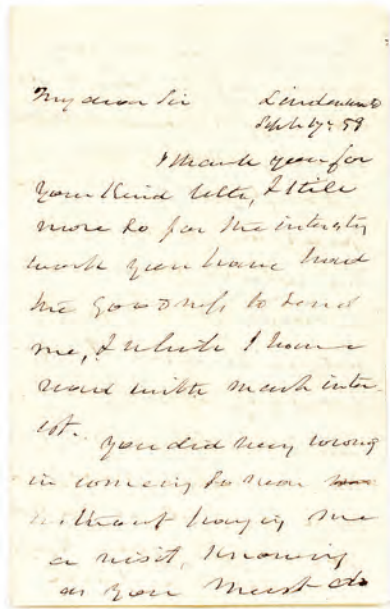 My dear Sir Lindenwald
Sept 17. 59
I thank you for
your kind letter, & still
more so for the interestg
work you have had
the goodness to send
me, & which I have
read with much inter-
est.
You did very wrong
in coming so near
without paying me
a visit, knowing
as you must do